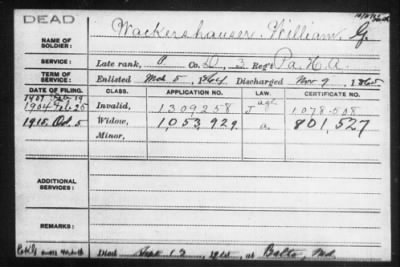 DEAD
NAME OF SOLDIER: Wackershauser, William G.
SERVICE: Late rank, P Co. D, 3 Reg't Pa. H. A.
TERM OF SERVICE: Enlisted Mch 5, 1864, Discharged Nov 9, 1865
DATE OF FILING. CLASS. APPLICATION NO. LAW. CERTIFICATE NO.
1907
1904 Feb 25 Invalid, 1309258 J age 1,078,508
1915. Oct. 5 Widow, 1,053,929 a. 801,527
Minor,
ADDITIONAL SERVICES:
REMARKS:
Died 13, at Balto, Md.